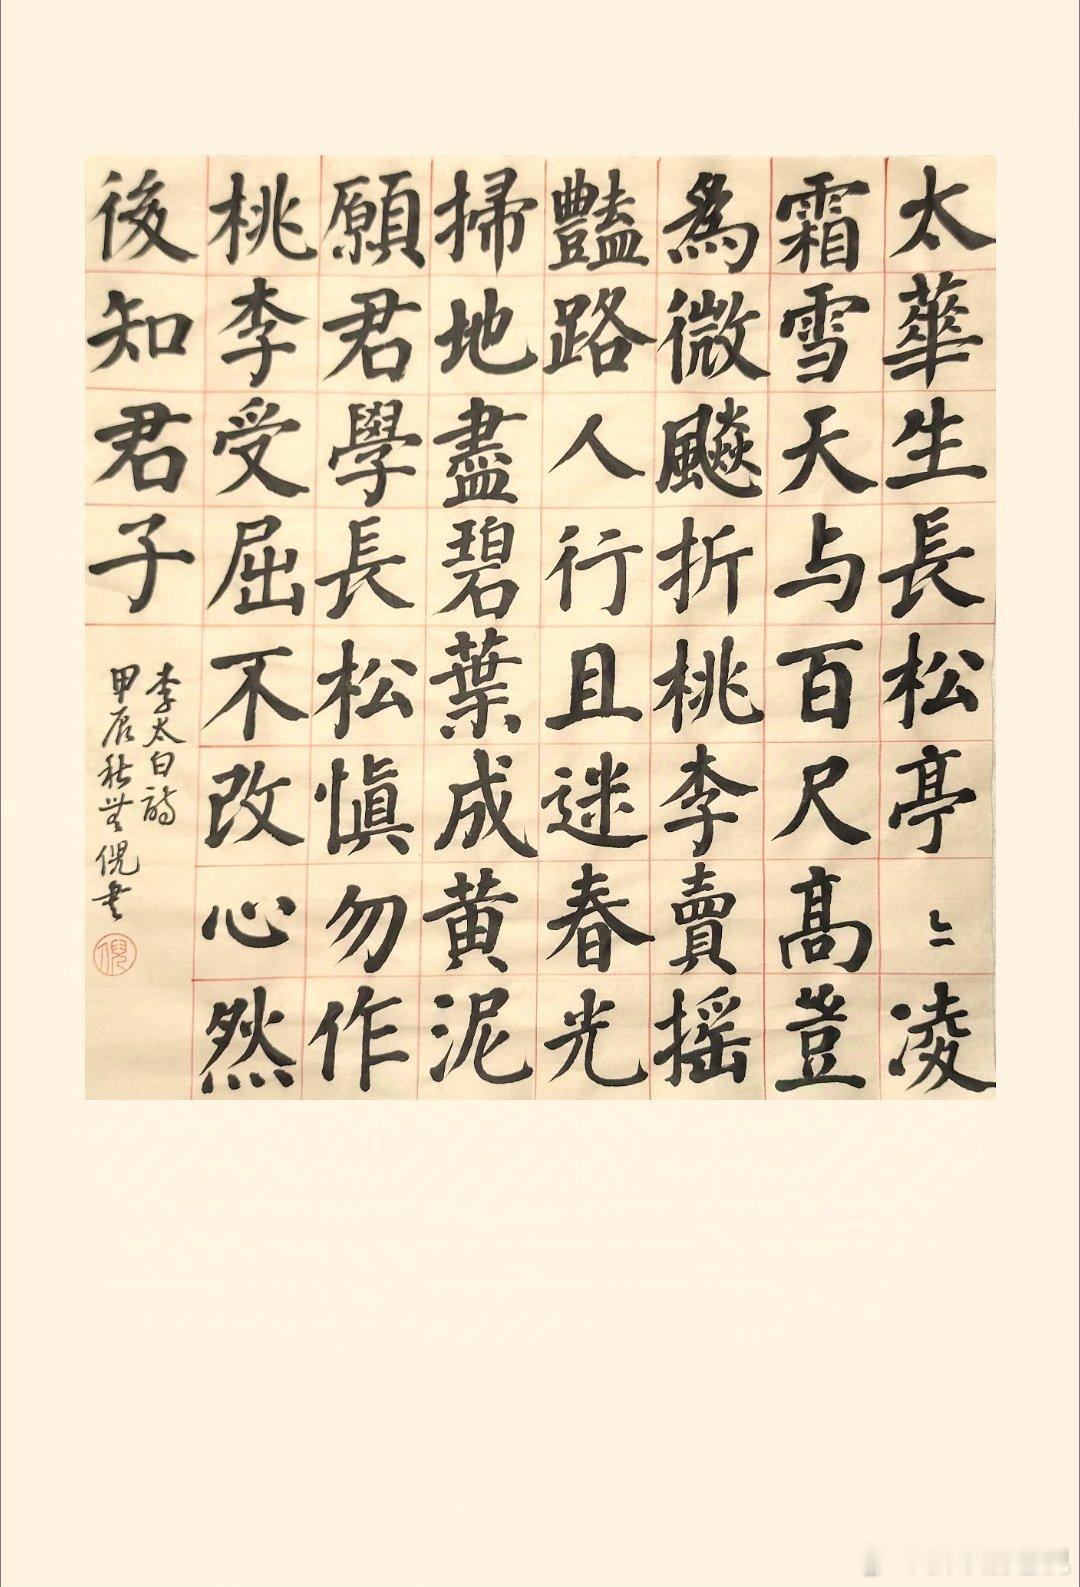 太華生長松亭〻凌
霜雪天与百尺髙豈
為微飈折桃李賣摇
豔路人行且迷春光
掃地盡碧葉成黄泥
願君學長松慎勿作
桃李受屈不改心然
後知君子
李太白詩
甲辰秋芸倪书
倪